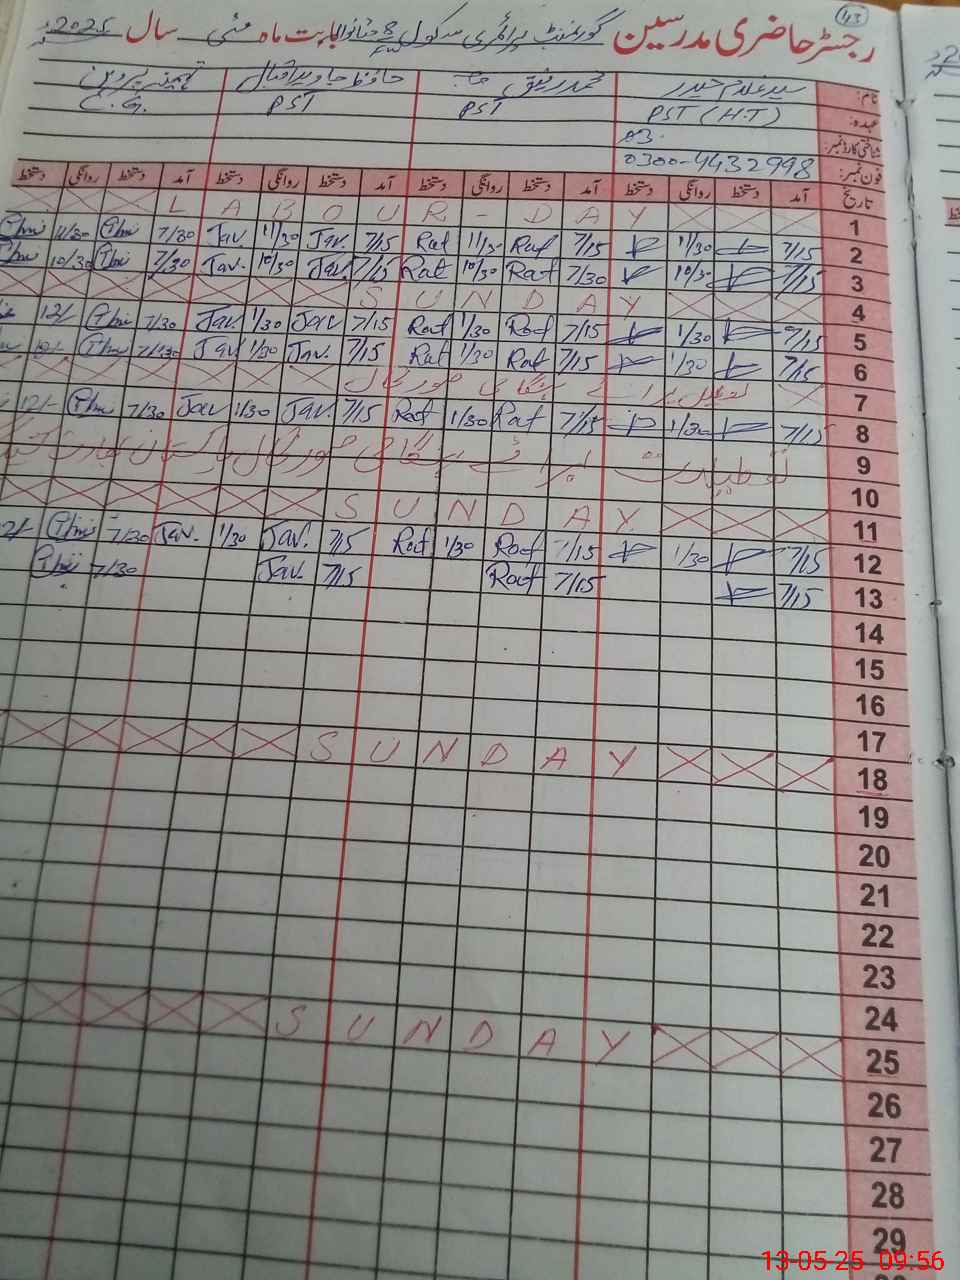 43
رجسٹر حاضری مدرسین گورنمنٹ پرائمری سکول بابت ماہ مئی سال 2025ء
نام: سید غلام حیدر محمد رفیق حافظ جاوید اقبال تہمینہ پروین
عہدہ: PST (H.T) PST PST C.G.
شناختی کارڈ نمبر: 03
فون نمبر: 0300-4432998
تاریخ آمد دستخط روانگی دستخط آمد دستخط روانگی دستخط آمد دستخط روانگی دستخط آمد دستخط روانگی دستخط
LABOUR-DAY 1
11/30 7/30 Jav. 11/30 Jav. 7/15 Raf 11/30 Raf 7/15 11/30 7/15 2
10/30 7/30 Jav. 10/30 Jav. 7/15 Raf 10/30 Raf 7/30 10/30 7/15 3
SUNDAY 4
12/- 7/30 Jav. 1/30 Jav 7/15 Raf 1/30 Raf 7/15 1/30 7/15 5
7/30 Jav 1/30 Jav. 7/15 Raf 1/30 Raf 7/15 1/30 7/15 6
ہنگامی صورتحال 7
12/- 7/30 Jav 1/30 Jav. 7/15 Raf 1/30 Raf 7/15 1/30 7/15 8
تعطیلات برائے ہنگامی صورتحال پاکستان بھارت 9
10
SUNDAY 11
7/30 Jav. 1/30 Jav. 7/15 Raf 1/30 Raf 7/15 1/30 7/15 12
7/30 Jav. 7/15 Raf 7/15 7/15 13
14
15
16
17
SUNDAY 18
19
20
21
22
23
24
SUNDAY 25
26
27
28
29
13-05-25 09:56